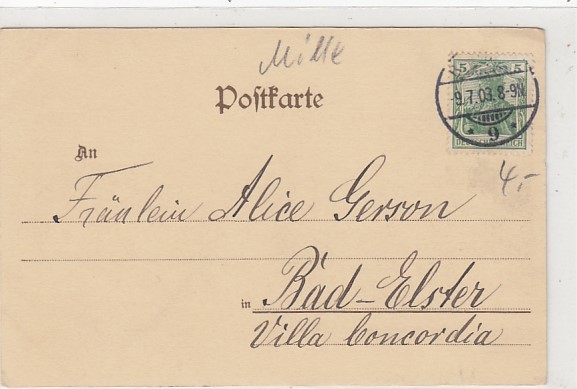 Mille
Postkarte
5 5
9.7.03.8-9N
* 9 *
DEUTSCHES REICH
4,-
An
Fräulein Alice Gerson
in Bad-Elster
Villa Concordia